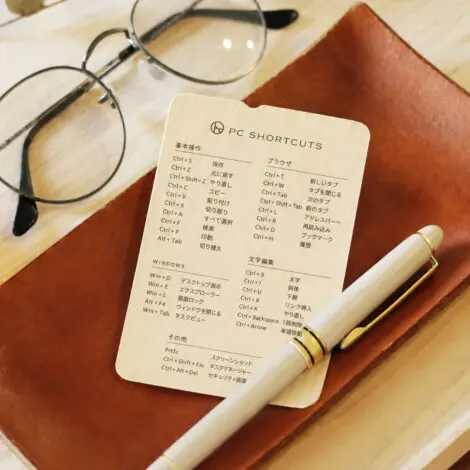 PC SHORTCUTS
基本操作
Ctrl+S 保存
Ctrl+Z 元に戻す
Ctrl+Shift+Z やり直し
Ctrl+C コピー
Ctrl+V 貼り付け
Ctrl+X 切り取り
Ctrl+A すべて選択
Ctrl+F 検索
Ctrl+P 印刷
Alt+Tab 切り替え
ブラウザ
Ctrl+T 新しいタブ
Ctrl+W タブを閉じる
Ctrl+Tab 次のタブ
Ctrl+Shift+Tab 前のタブ
Ctrl+L アドレスバーへ
Ctrl+R 再読み込み
Ctrl+D ブックマーク
Ctrl+H 履歴
WINDOWS
Win+D デスクトップ表示
Win+E エクスプローラー
Win+L 画面ロック
Alt+F4 ウィンドウを閉じる
Win+Tab タスクビュー
文字編集
Ctrl+B 太字
Ctrl+I 斜体
Ctrl+U 下線
Ctrl+K リンク挿入
Ctrl+ やり直し
Ctrl+Backspace
Ctrl+Arrow 単語移動
その他
PrtSc スクリーンショット
Ctrl+Shift+Esc タスクマネージャー
Ctrl+Alt+Del セキュリティ画面